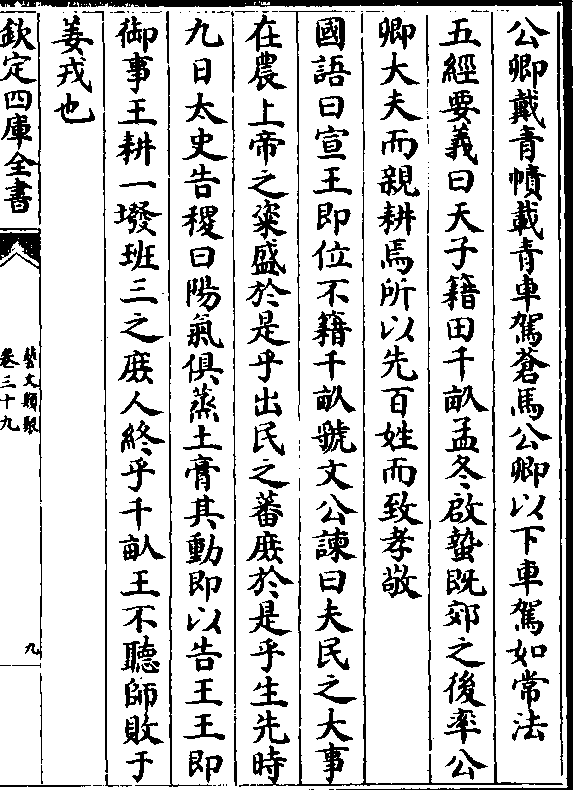 公卿戴青幘載青車駕蒼馬公卿以下車駕如常法
五經要義曰天子籍田千畝孟冬啟蟄既郊之後率公
卿大夫而親耕焉所以先百姓而致孝敬
國語曰宣王即位不籍千畝虢文公諫曰夫民之大事
在農上帝之粢盛於是乎出民之蕃庶於是乎生先時
九日太史告稷曰陽氣俱蒸土膏其動即以告王王即
御事王耕一墢班三之庶人終乎千畝王不聽師敗于
姜戎也
欽定四庫全書
藝文類聚
卷三十九
九